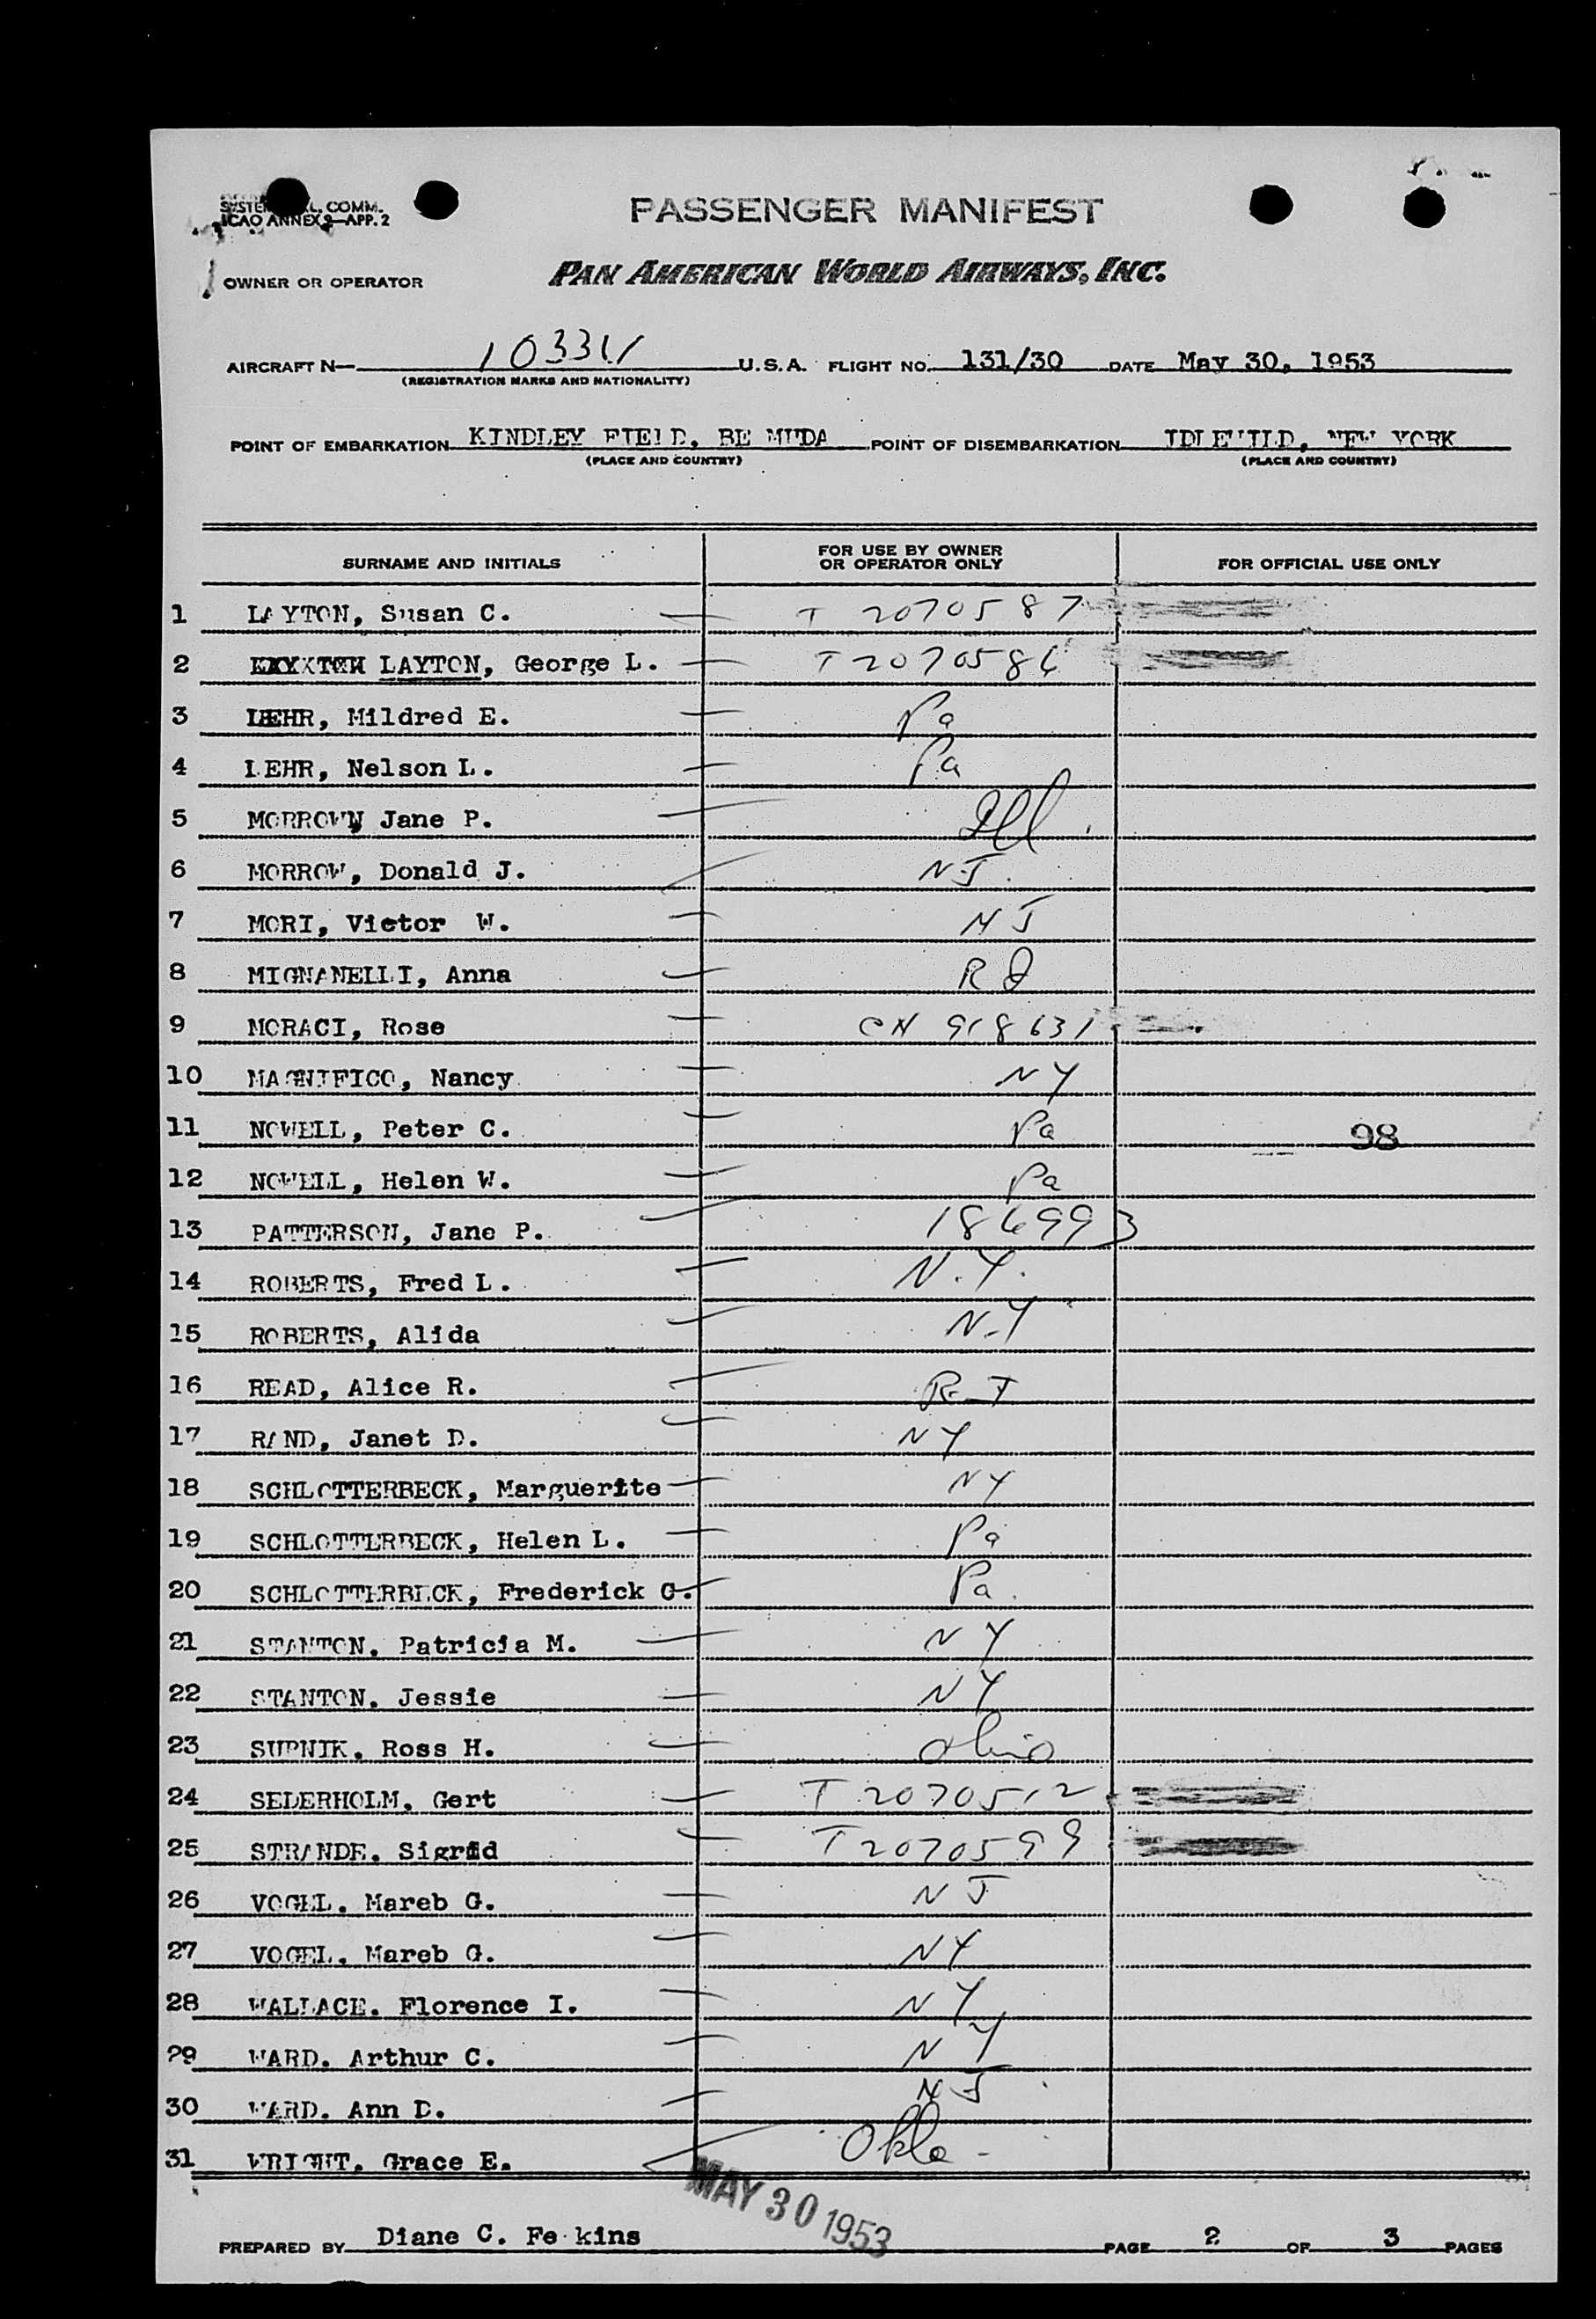 SYSTEM COMM.
ICAO ANNEX 9—APP. 2
PASSENGER MANIFEST
OWNER OR OPERATOR PAN AMERICAN WORLD AIRWAYS, INC.
AIRCRAFT N— U.S.A. FLIGHT NO. 131/30 DATE May 30, 1953
(REGISTRATION MARKS AND NATIONALITY)
POINT OF EMBARKATION KINDLEY FIELD, BE MUDA POINT OF DISEMBARKATION IDLEWILD, NEW YORK
(PLACE AND COUNTRY) (PLACE AND COUNTRY)
SURNAME AND INITIALS FOR USE BY OWNER OR OPERATOR ONLY FOR OFFICIAL USE ONLY
1 LAYTON, Susan C. T 2070587
2 LAYTON, George L. T2070586
3 LEHR, Mildred E. Pa
4 LEHR, Nelson L. Pa
5 MORROW, Jane P. Ill.
6 MORROW, Donald J. NJ.
7 MORI, Victor W. NJ
8 MIGNANELLI, Anna RI
9 MORACI, Rose CN 918631
10 MAGNIFICO, Nancy NY
11 NOWELL, Peter C. Pa 98
12 NOWELL, Helen W. Pa
13 PATTERSON, Jane P. 186993
14 ROBERTS, Fred L. N.Y.
15 ROBERTS, Alida N.Y
16 READ, Alice R. R.I
17 RAND, Janet D. NY
18 SCHLOTTERBECK, Marguerite NY
19 SCHLOTTERBECK, Helen L. Pa
20 SCHLOTTERBECK, Frederick C. Pa.
21 STANTON, Patricia M. NY
22 STANTON, Jessie NY
23 SUPNIK, Ross H. Ohio
24 SEDERHOLM, Gert T 2070512
25 STRANDE, Sigrid T2070599
26 VOGEL, Mareb G. NJ
27 VOGEL, Mareb G. NY
28 WALLACE, Florence I. NY
29 WARD, Arthur C. NY
30 WARD, Ann D. NJ
31 WRIGHT, Grace E. Okla-
MAY 30 1953
PREPARED BY Diane C. Fe kins PAGE 2 OF 3 PAGES